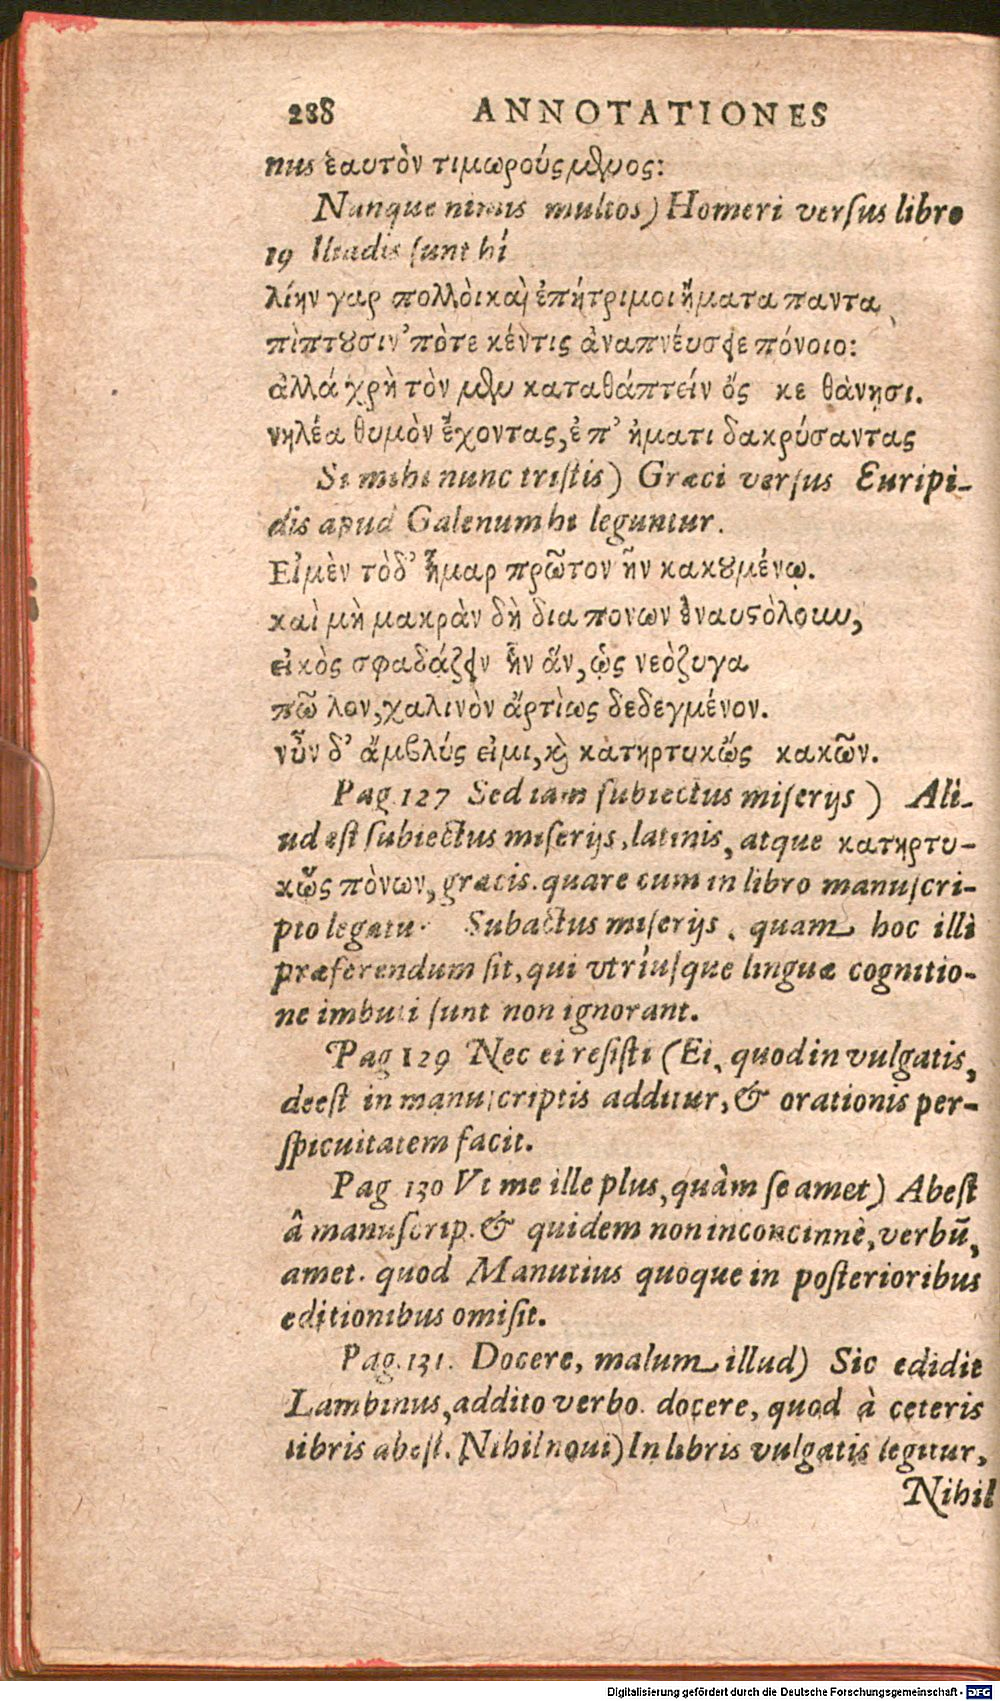 288 ANNOTATIONES
nus ἑαυτὸν τιμωρούςμενος:
Nanque nimis multos) Homeri versus libro
19 Iliadis sunt hi
λίην γαρ πολλὸικαὶ ἐπήτριμοι ἤματα παντα
πὶπτουσιν πὸτε κέντις ἀναπνέυσειε πόνοιο:
ἀλλά χρὴ τὸν μεν καταθάπτείν ὅς κε θὰνησι.
νηλέα θυμὸν ἔχοντας, ἐπ' ἠματι δακρύσαντας
Si mihi nunc tristis) Græci versus Euripi-
dis apud Galenum hi leguntur.
Εἰμὲν τὸδ' ἦμαρ πρῶτον ἦν κακουμένῳ.
καὶ μὴ μακρὰν δὴ δια πονων ἐναυςόλουν,
εἰκὸς σφαδάζειν ἦν ἄν, ὡς νεὸζυγα
πῶ λον, χαλινὸν ἄρτὶως δεδεγμένον.
νῦν δ' ἄμβλύς εἰμι, καὶ κὰτηρτυκὥς κακῶν.
Pag. 127 Sed iam subiectus miserijs ) Ali-
ud est subiectus miserijs, latinis, atque κατηρτυ-
κὥς πὸνων, græcis. quare cum in libro manuscri-
pto legatu Subactus miserijs, quam hoc illi
præferendum sit, qui vtriusque linguæ cognitio-
ne imbuti sunt non ignorant.
Pag 129 Nec ei resisti (Ei, quod in vulgatis,
deest in manuscriptis additur, & orationis per-
spicuitatem facit.
Pag 130 Vt me ille plus, quàm se amet) Abest
â manuscrip. & quidem non inconcinnè, verbũ,
amet. quod Manutius quoque in posterioribus
editionibus omisit.
Pag. 131. Docere, malum illud) Sic edidit
Lambinus, addito verbo. docere, quod à ceteris
libris abest. Nihil noui) In libris vulgatis legitur,
Nihil
Digitalisierung gefördert durch die Deutsche Forschungsgemeinschaft - DFG